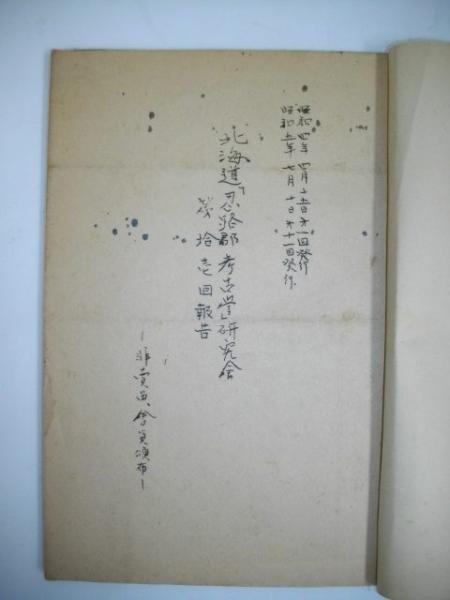 昭和四年四月十五日才一回発行
昭和五年七月十日才十一回発行
北海道「忍路郡」考古学研究会
拾壱回報告
―非売品、会員頒布―